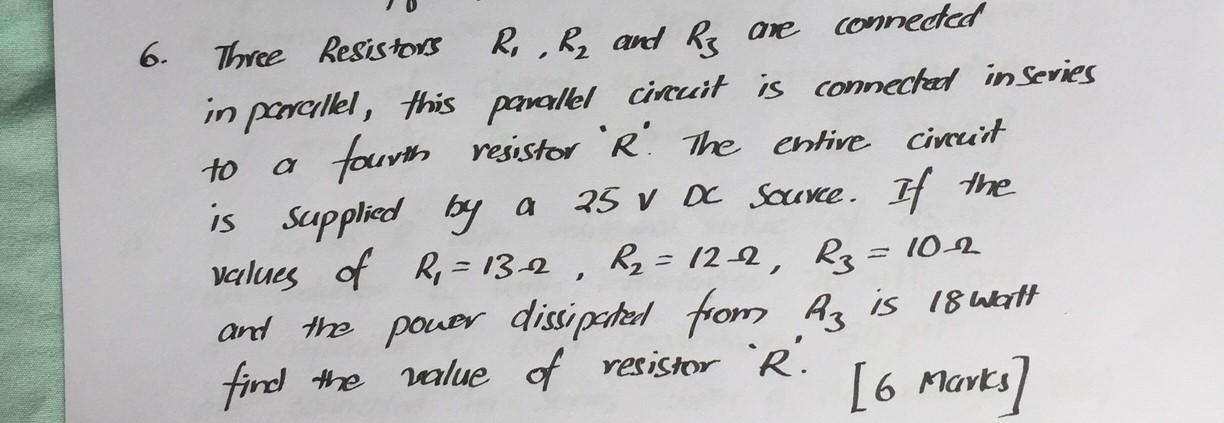 6. Three Resistors R₁, R₂ and R₃ are connected
in parallel, this parallel circuit is connected in series
to a fourth resistor 'R'. The entire circuit
is supplied by a 25 V DC Source. If the
values of R₁ = 13Ω, R₂ = 12Ω, R₃ = 10Ω
and the power dissipated from R₃ is 18 Watt
find the value of resistor 'R'. [6 Marks]